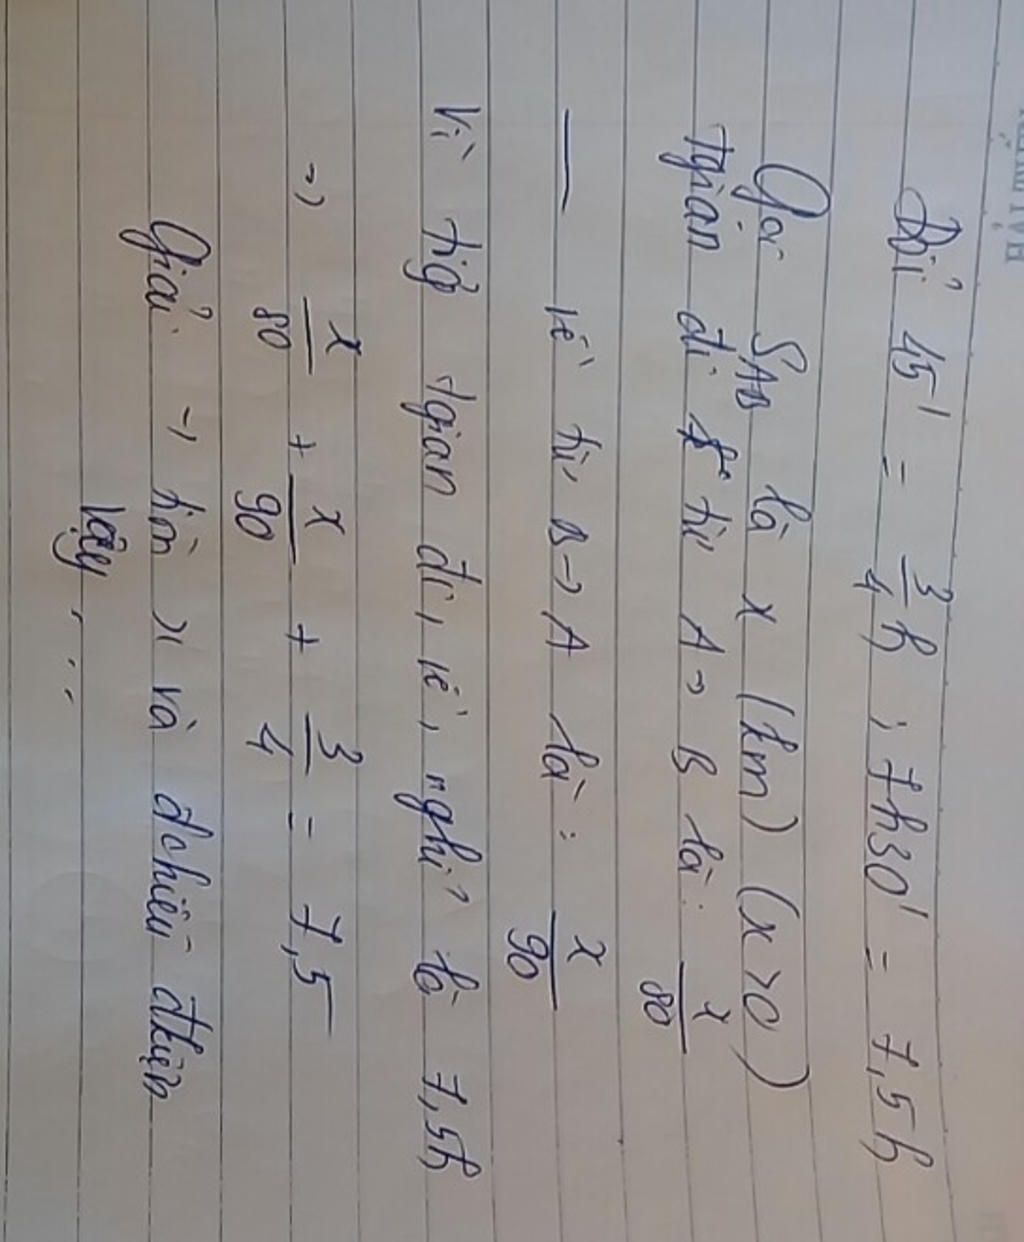 Đổi 45' = 3/4 h ; 7h30' = 7,5h
Gọi S_AB là x (km) (x>0)
tgian đi từ A→B là: x/80
— về từ B→A là: x/90
Vì tgian đi, về, nghỉ là 7,5h
→ x/80 + x/90 + 3/4 = 7,5
Giải → tìm x và đchiếu đkiện
Vậy ...